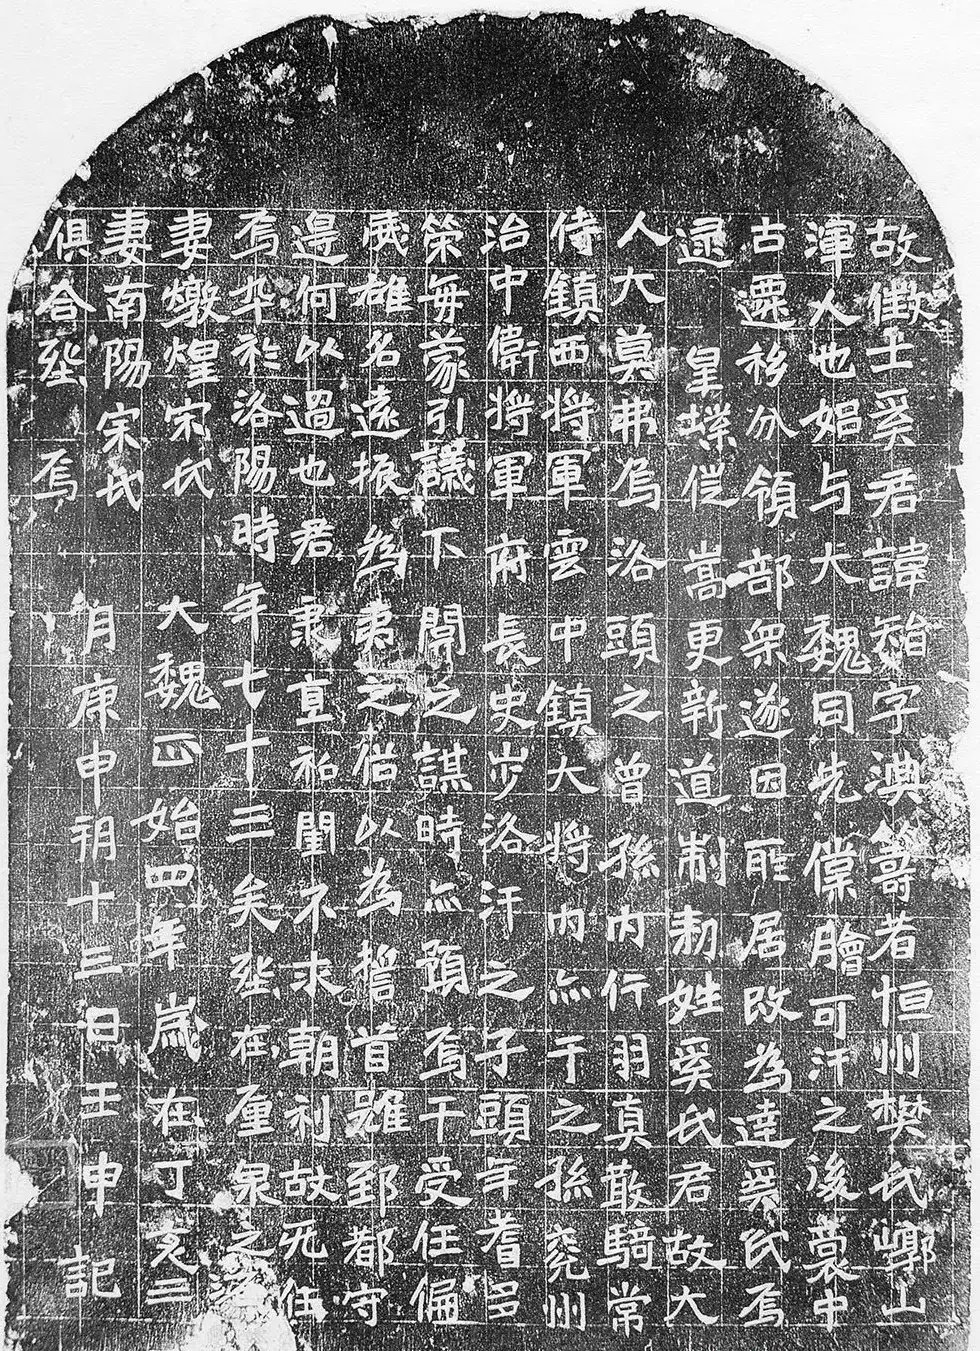 故徵士奚君諱智字淟籌者恒州樊氏崞山
渾人也始与大魏同先僕膾可汗之後裔中
古遷移分領部衆遂因所居改為達奚氏焉
逮皇業徙嵩更新道制勑姓奚氏君故大
人大莫弗烏洛頭之曾孫內行羽真散騎常
侍鎮西將軍雲中鎮大將內亦干之孫兗州
治中衛將軍府長史步洛汗之子頭年耆多
策每蒙引議下關之謀時亦預焉干受任偏
威雄名遠振為夷之俗以為誓首雖郅都守
邊何以過也君隸直私閨不求朝利故死任
焉卒於洛陽時年七十三矣葬在廛泉之源
妻燉煌宋氏 大魏正始四年歲在丁亥三
妻南陽宋氏 月庚申朔十三日壬申 記
俱合葬焉